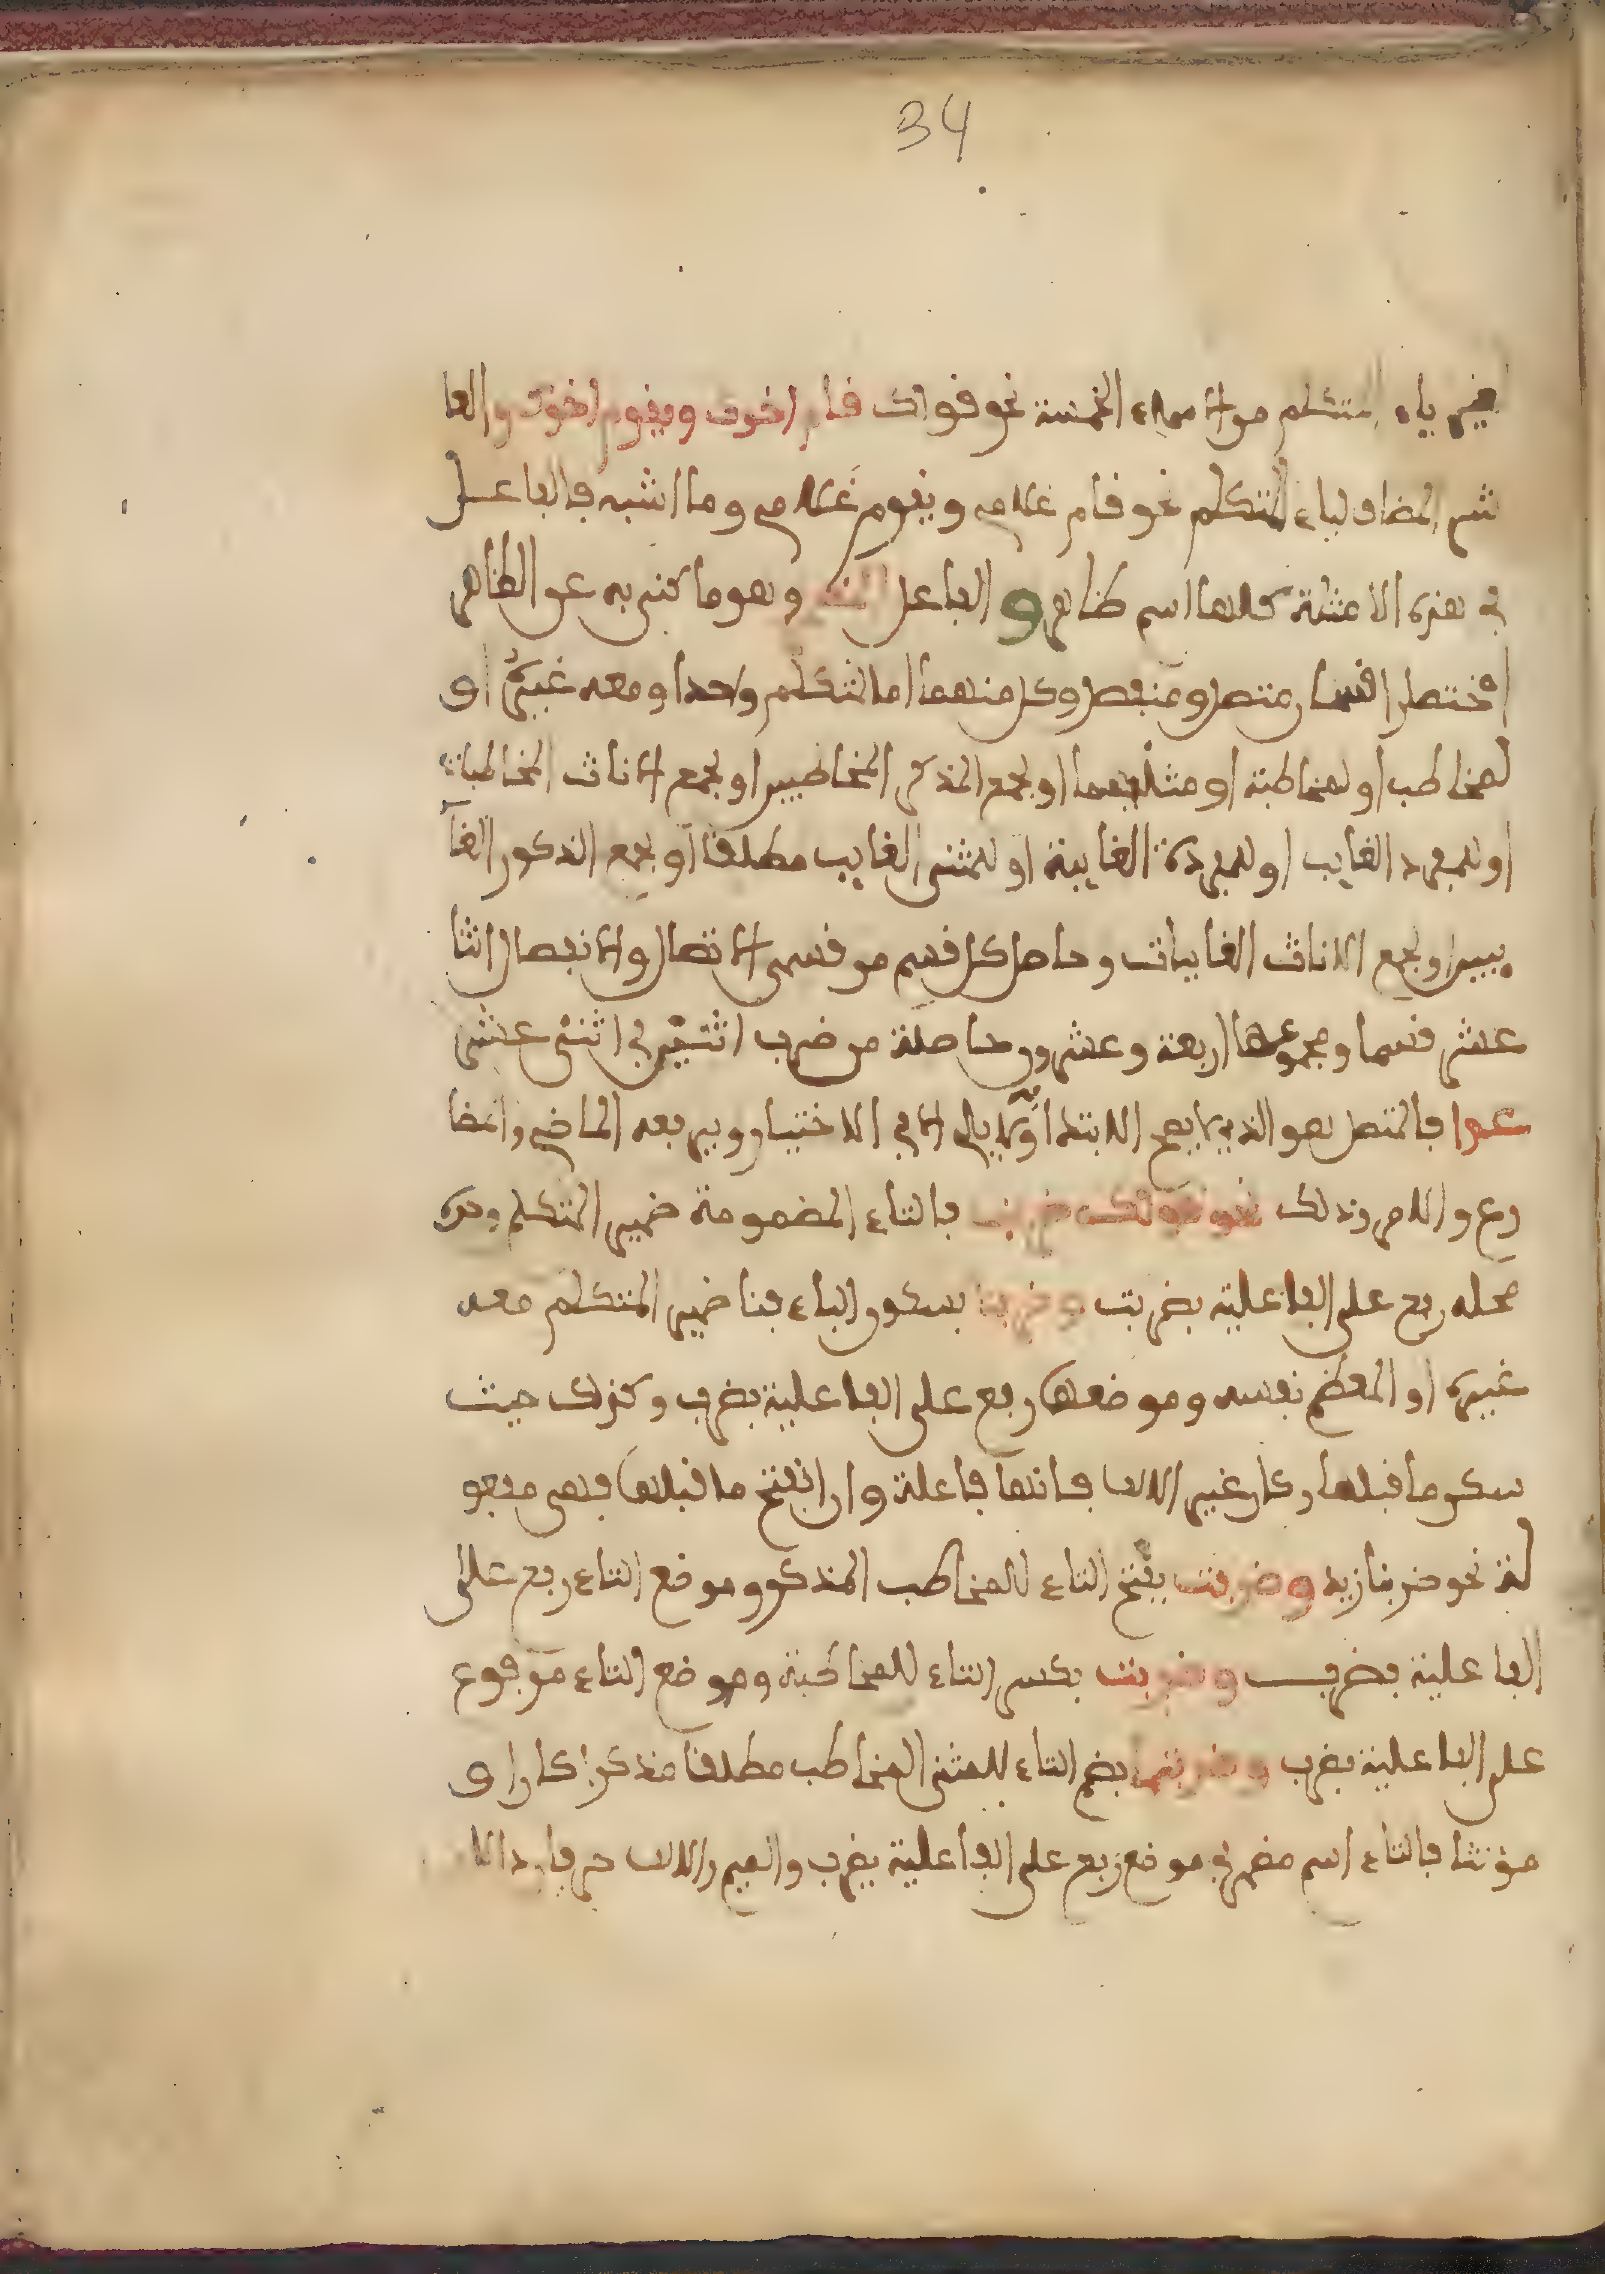 34
لغير ياء المتكلم من الاسماء الخمسة نحو قولك قام اخوك ويقوم اخوك والفا
شم المضاف لياء المتكلم نحو قام غلامي ويقوم غلامي وما اشبه فالفاعل
في هذه الامثلة كلها اسم ظاهر و الفاعل المضمر وهو ما كني به عن الظاهر
اختصارا قسمان متصل ومنفصل وكل منهما اما لمتكلم واحدا ومعه غيره او
لمخاطب او لمخاطبة او مثنيهما او لجمع المذكر المخاطبين او لجمع الاناث المخاطبات
او للمفرد الغايب او للمفردة الغايبة او للمثنى الغايب مطلقا او لجمع الذكور الغا
يبين او لجمع الاناث الغايبات وحاصل كل قسم من قسمي الاتصال والانفصال اثنا
عشر قسما ومجموعها اربعة وعشرون حاصلة من ضرب اثنين في اثني عشر
فالمتصل هو الذي لا يصح الابتدا به ولا يلي الا في الاختيار ويرفعه الماضي والمضا
رع والامر وذلك نحو قولك ضربت بالتاء المضمومة ضمير المتكلم وحده
محله رفع على الفاعلية بضربت وضربنا بسكون الباء فنا ضمير المتكلم معه
غيره او المعظم نفسه وموضعها رفع على الفاعلية بضرب وكذلك حيث
سكن ما قبلها وكان غير الالف فانها فاعلة وان انفتح ما قبلها فهي مفعو
لة نحو ضربنا زيد وضربت بفتح التاء للمخاطب المذكور وموضع التاء رفع على
الفاعلية بضرب وضربت بكسر التاء للمخاطبة وموضع التاء مرفوع
على الفاعلية بضرب وضربتما بضم التاء للمثنى المخاطب مطلقا مذكرا كان او
مؤنثا فالتاء اسم مضمر في موضع رفع على الفاعلية بضرب والميم والالف حرفان دالا